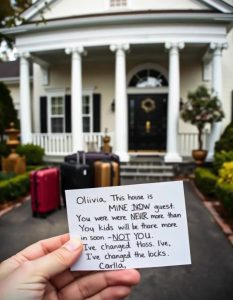 Oliivia. This house is
MINE NOW guest.
You were were NEVER more than
You kids will be there more
in soon – NOT YOU.
I've changed Hoss. I've,
I've changed the locks.
Carlla,